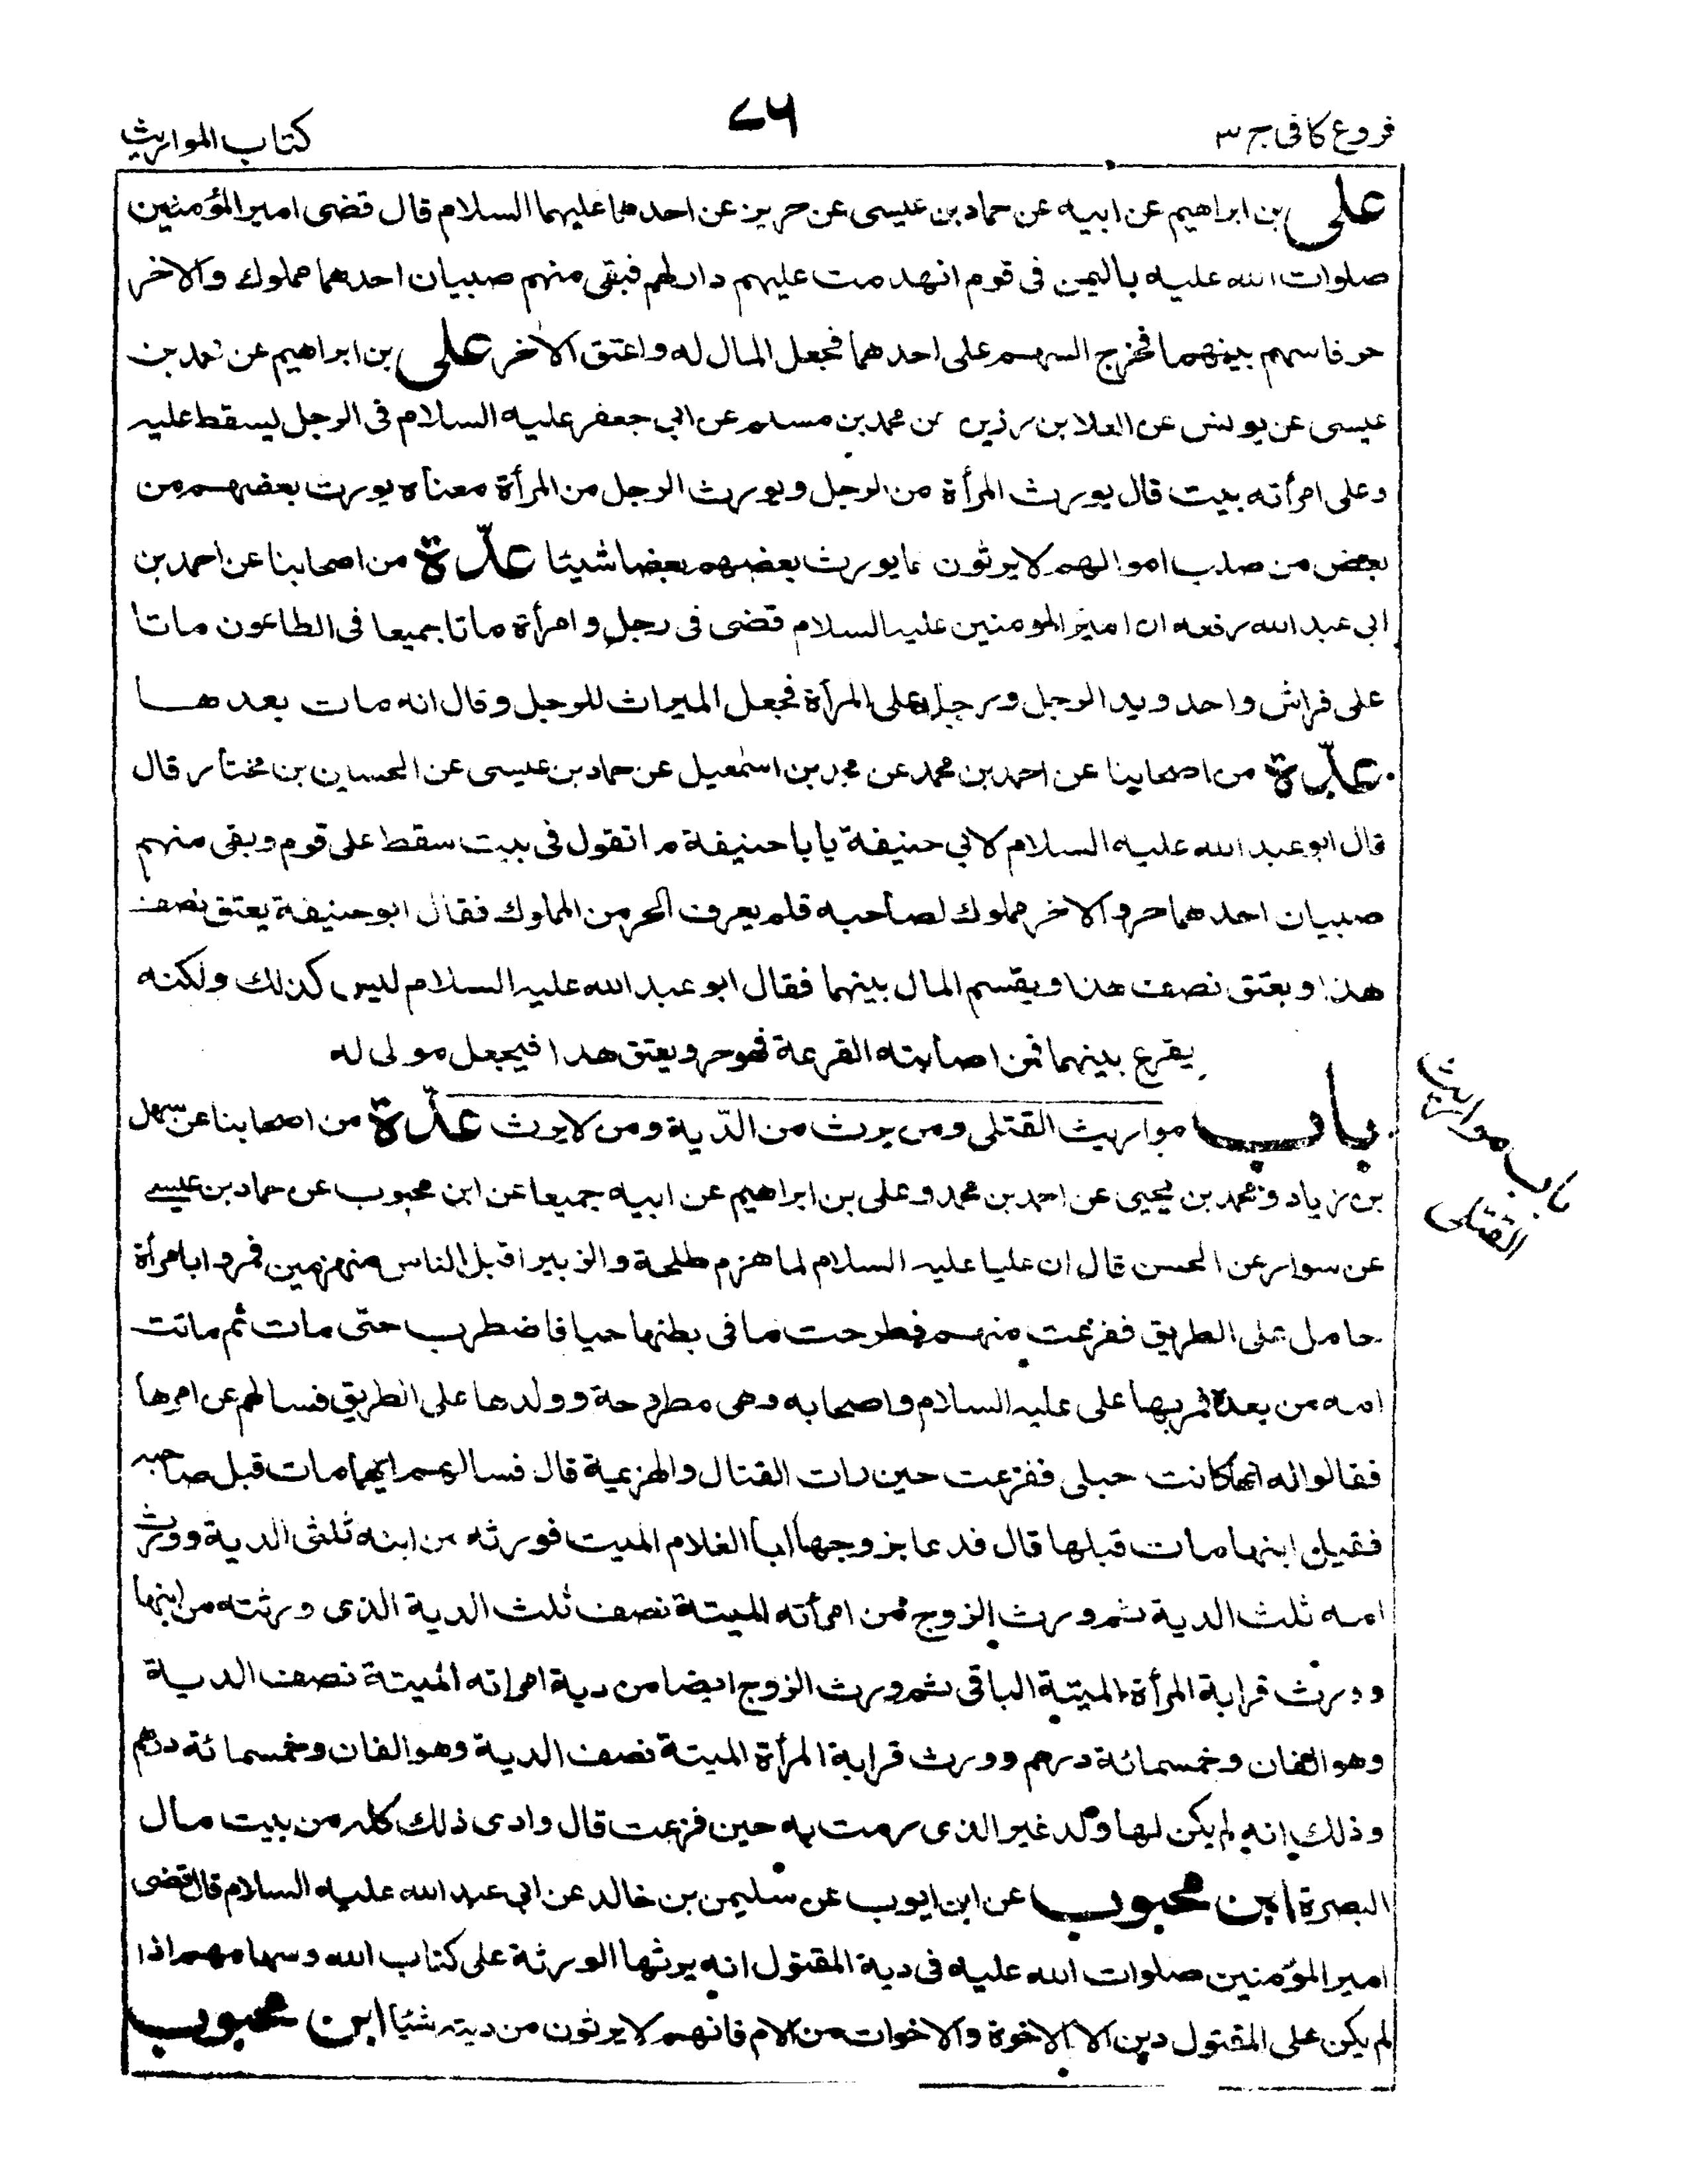 فروع کافی ج ۳
۷۶
کتاب المواریث
علی بن ابراهیم عن ابیه عن حماد بن عیسی عن حریز عن احدهما علیهما السلام قال قضی امیرالمؤمنین
صلوات الله علیه بالیمن فی قوم انهدمت علیهم دار لهم فبقی منهم صبیان احدهما مملوك والاخر
حر فاسهم بینهما فخرج السهم علی احدهما فجعل المال له واعتق الاخر علی بن ابراهیم عن محمد بن
عیسی عن یونس عن العلا بن رزین عن محمد بن مسلم عن ابی جعفر علیه السلام فی الرجل یسقط علیه
وعلی امرأته بیت قال یورث المرأة من الرجل ویورث الرجل من المرأة معناه یورث بعضهم من
بعض من صلب اموالهم لایرثون مما یورث بعضهم بعضا شیئا عدّة من اصحابنا عن احمد بن
ابی عبد الله رفعه ان امیر المومنین علیه السلام قضی فی رجل و امرأة ماتا جمیعا فی الطاعون ماتا
علی فراش واحد وید الرجل ورجله علی المرأة فجعل المیراث للرجل وقال انه مات بعدها
عدّة من اصحابنا عن احمد بن محمد عن محمد بن اسمعیل عن حماد بن عیسی عن الحسین بن مختار قال
قال ابو عبد الله علیه السلام لابی حنیفة یا با حنیفة ما تقول فی بیت سقط علی قوم وبقی منهم
صبیان احدهما حر والاخر مملوك لصاحبه فلم یعرف الحر من المملوك فقال ابو حنیفة یعتق نصف
هذا ویعتق نصف هذا ویقسم المال بینهما فقال ابو عبد الله علیه السلام لیس کذلك ولکنه
یقرع بینهما فمن اصابته القرعة فهو حر ویعتق هذا فیجعل مولی له
باب مواریث القتلی ومن یرث من الدّیة ومن لایرث عدّة من اصحابنا عن سهل
باب مواریث
القتلی
بن زیاد ومحمد بن یحیی عن احمد بن محمد وعلی بن ابراهیم عن ابیه جمیعا عن ابن محبوب عن حماد بن عیسے
عن سوار عن الحسن قال ان علیا علیه السلام لما هزم طلحة والزبیر اقبل الناس منهزمین فمروا بامرأة
حامل علی الطریق ففزعت منهم فطرحت ما فی بطنها حیا فاضطرب حتّی مات ثم ماتت
امه من بعده فمر بها علی علیه السلام واصحابه وهی مطروحة وولدها علی الطریق فسالهم عن امرها
فقالوا له انها کانت حبلی ففزعت حین رات القتال والهزیمة قال فسالهم ایهما مات قبل صاحبه
فقیل ابنها مات قبلها قال فدعا بزوجها ابا الغلام المیت فورثه من ابنه ثلثی الدیة وورث
امه ثلث الدیة ثم ورث الزوج من امرأته المیتة نصف ثلث الدیة الذی ورثته من ابنها
وورث قرابة المرأة المیتة الباقی ثم ورث الزوج ایضا من دیة امراته المیتة نصف الدیة
وهو الفان وخمسمائة درهم وورث قرابة المرأة المیتة نصف الدیة وهو الفان وخمسمائة درهم
وذلك انه لم یکن لها ولد غیر الذی رمت به حین فزعت قال وادی ذلك کله من بیت مال
البصرة ابن محبوب عن ابن ایوب عن سلیمن بن خالد عن ابی عبد الله علیه السلام قال قضی
امیر المؤمنین صلوات الله علیه فی دیة المقتول انه یرثها الورثة علی کتاب الله وسهامهم اذا
لم یکن علی المقتول دین الا الاخوة والاخوات من الام فانهم لایرثون من دیته شیئا ابن محبوب